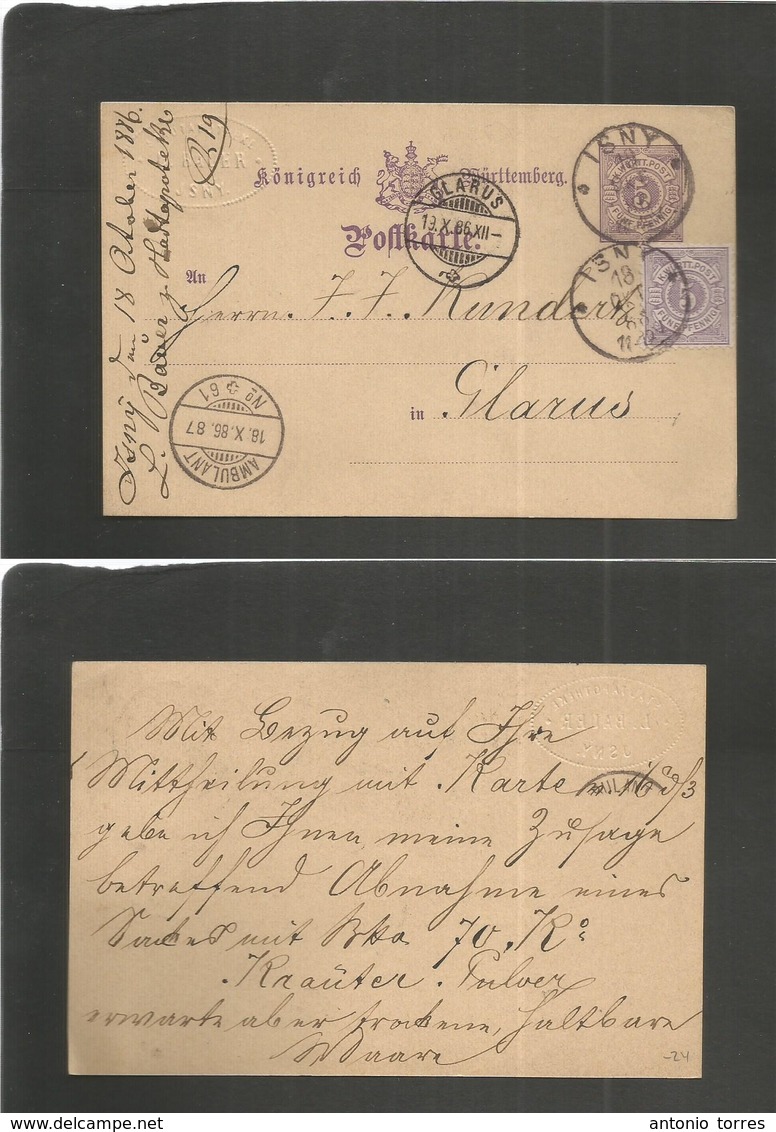 Königreich Württemberg.
Postkarte.
An
Herrn J. J. Kundert
in Glarus
Isny 18 October 1886.
L. Bauer z. Stadtapotheke
B 19
ISNY
K. WÜRTT. POST
5
FÜNF PFENNIG
ISNY
18
OCT
1886
K. WÜRTT. POST
5
FÜNF PFENNIG
GLARUS
19.X.86.XII-
AMBULANT
18.X.86.87
No 61
STADTAPOTHEKE
L. BAUER
ISNY.
Mit Bezug auf Ihre
Mittheilung mit Karte
gebe ich Ihnen meine Zusage
betreffend Abnahme eines
Sackes mit Btto 70 Ko
Kräuter Pulver
erwarte aber trockene, haltbare
Waare
-24
antonio torres